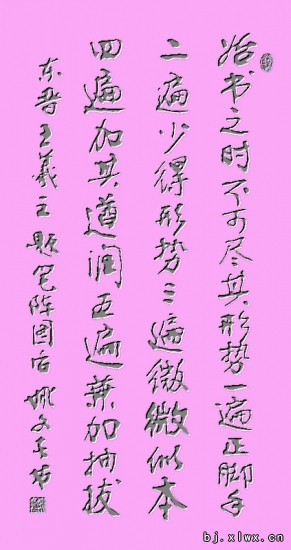 始书之时不可尽其形势一遍正脚手
二遍少得形势三遍微微似本
四遍加其遒润五遍兼加抽拔
东晋王羲之题笔阵图后
bj.xlwx.cn